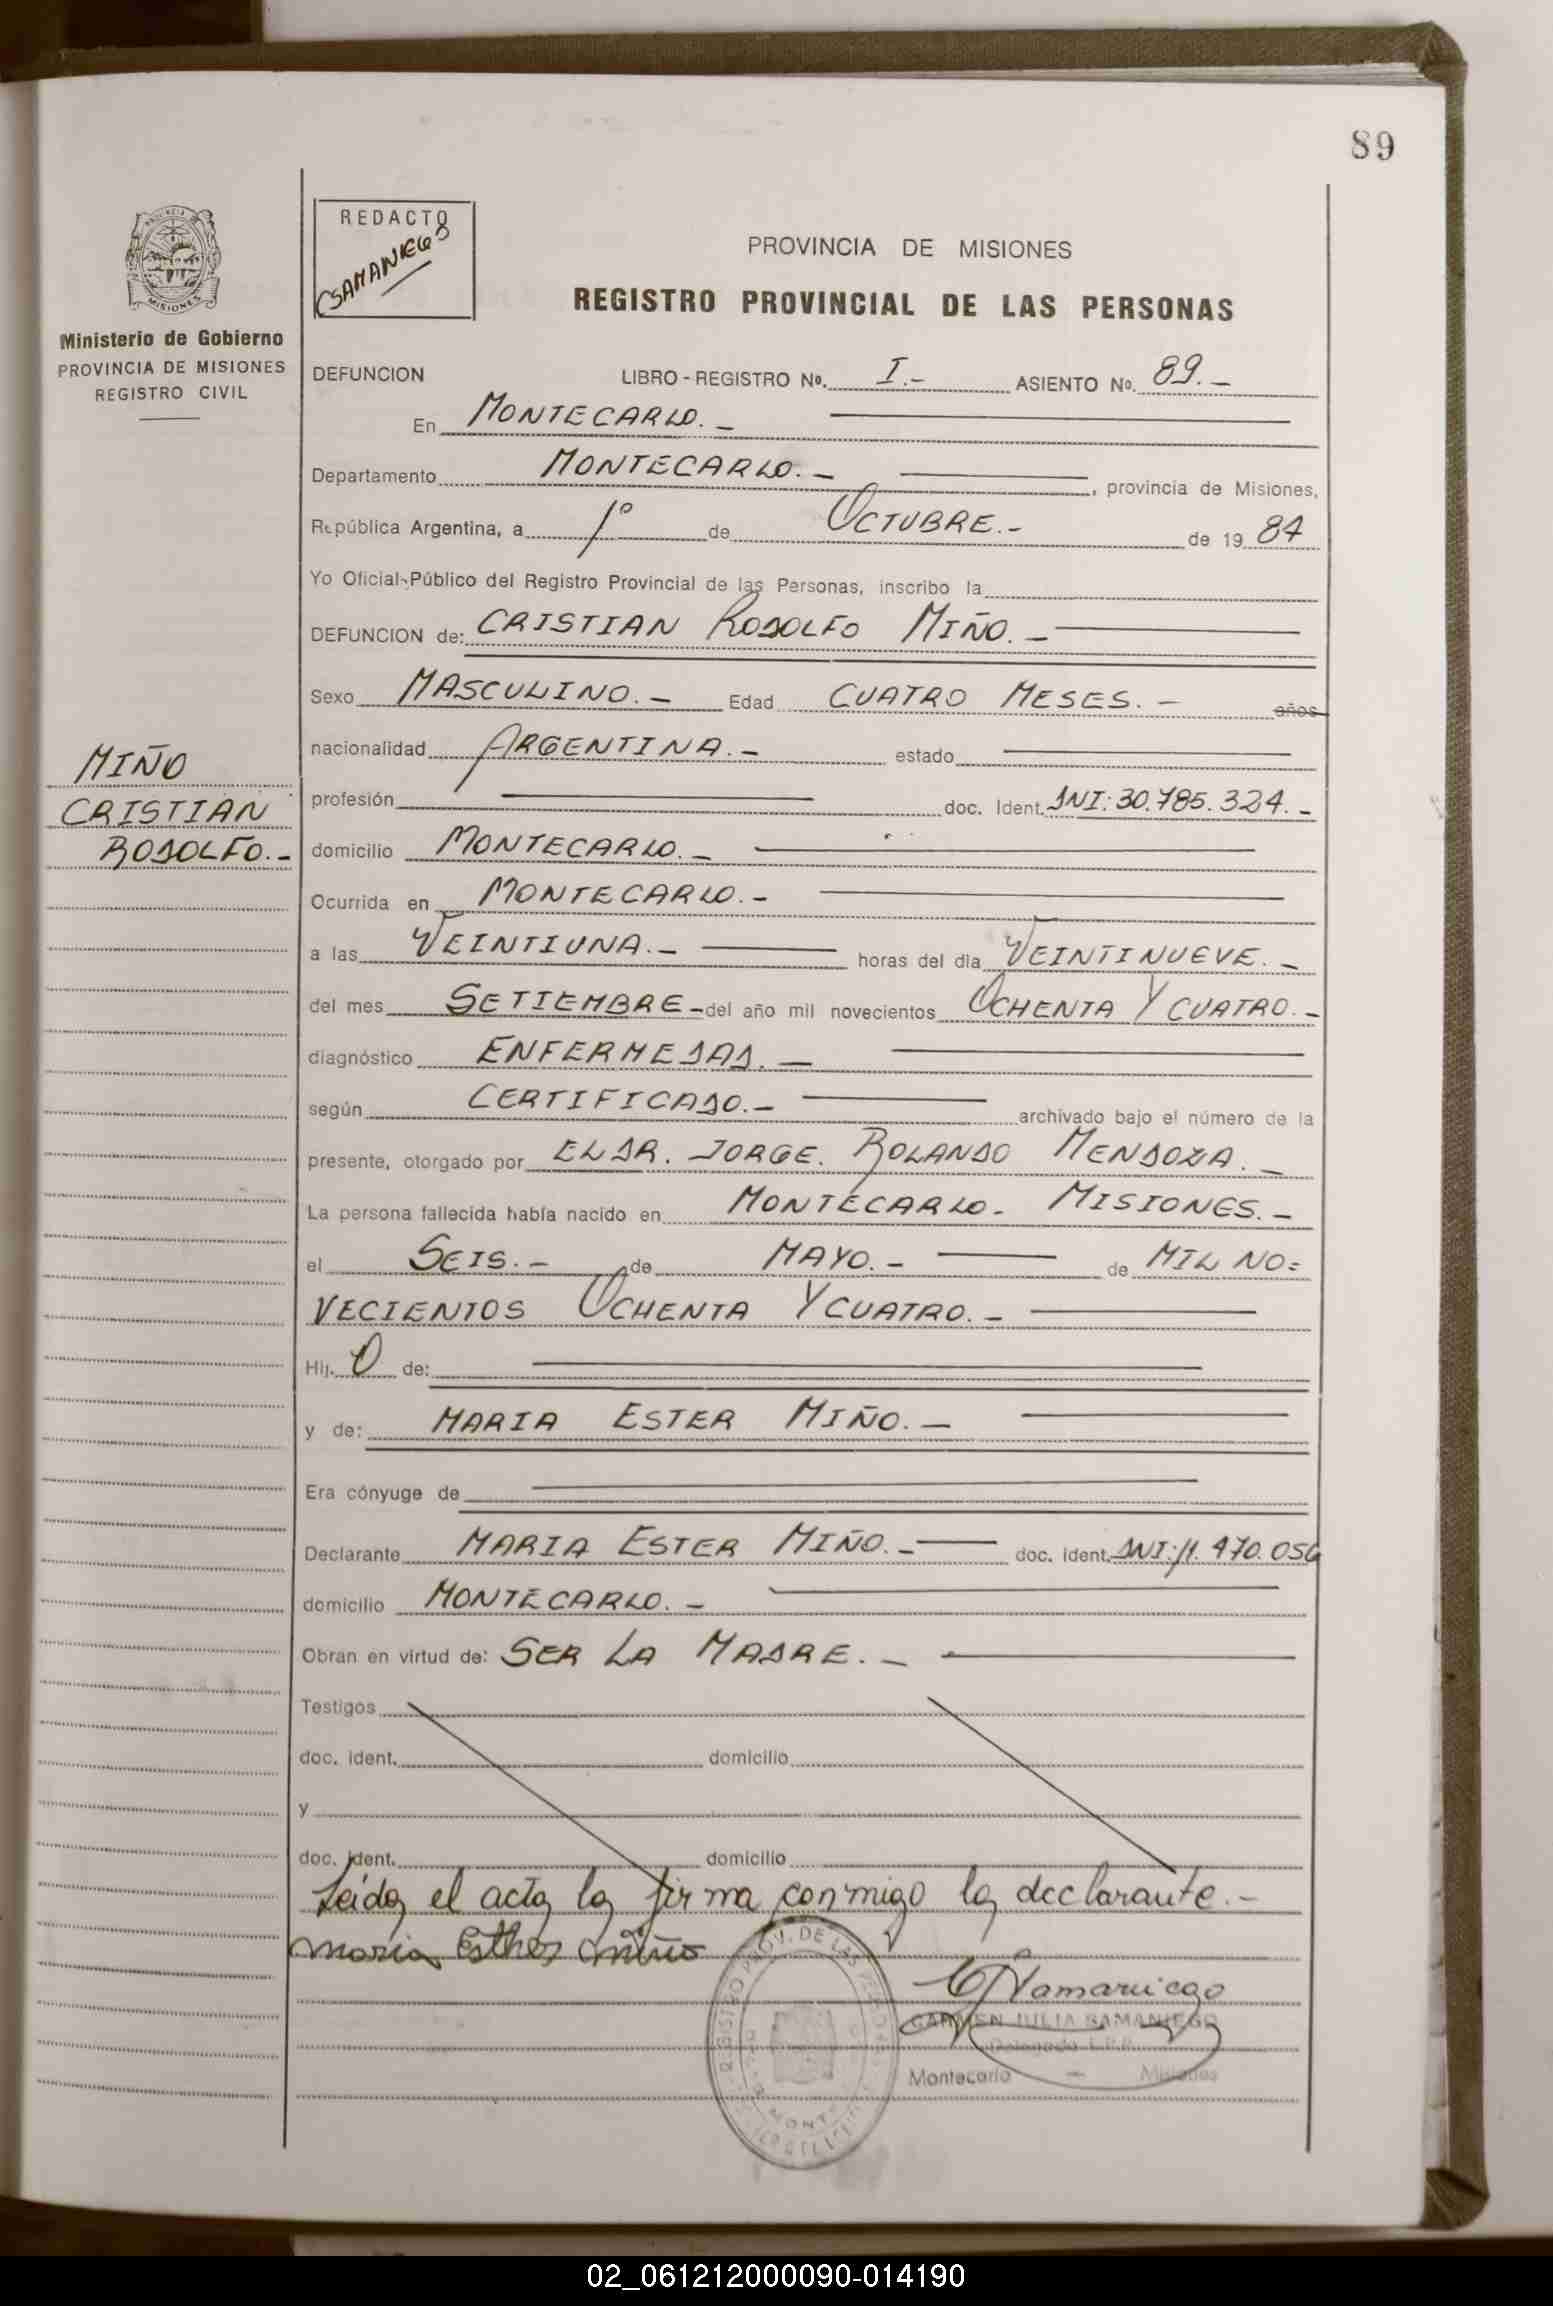 89
REDACTO
CSAMANIEGO
PROVINCIA DE MISIONES
REGISTRO PROVINCIAL DE LAS PERSONAS
MISIONES
Ministerio de Gobierno
PROVINCIA DE MISIONES
REGISTRO CIVIL
DEFUNCION LIBRO - REGISTRO Nº. I.- ASIENTO Nº. 89.-
En MONTECARLO.-
Departamento MONTECARLO.- , provincia de Misiones,
República Argentina, a 1º de OCTUBRE.- de 19 84
Yo Oficial Público del Registro Provincial de las Personas, inscribo la
DEFUNCION de: CRISTIAN RODOLFO MIÑO.-
Sexo MASCULINO.- Edad CUATRO MESES.- años
nacionalidad ARGENTINA.- estado
MIÑO
CRISTIAN
RODOLFO.-
profesión doc. Ident. DNI: 30.785.324.-
domicilio MONTECARLO.-
Ocurrida en MONTECARLO.-
a las VEINTIUNA.- horas del día VEINTINUEVE.-
del mes SETIEMBRE- del año mil novecientos OCHENTA Y CUATRO.-
diagnóstico ENFERMEDAD.-
según CERTIFICADO.- archivado bajo el número de la
presente, otorgado por EL DR. JORGE. ROLANDO MENDOZA.-
La persona fallecida había nacido en MONTECARLO- MISIONES.-
el SEIS.- de MAYO.- de MIL NO=
VECIENTOS OCHENTA Y CUATRO.-
Hij. O de:
y de: MARIA ESTER MIÑO.-
Era cónyuge de
Declarante MARIA ESTER MIÑO.- doc. ident. DNI: 11.470.056
domicilio MONTECARLO.-
Obran en virtud de: SER LA MADRE.-
Testigos
doc. ident. domicilio
y
doc. ident. domicilio
Leida el acta la firma conmigo la declarante.-
maria Esther miño
CJSamaniego
CARMEN JULIA SAMANIEGO
Montecarlo - Misiones
02_061212000090-014190